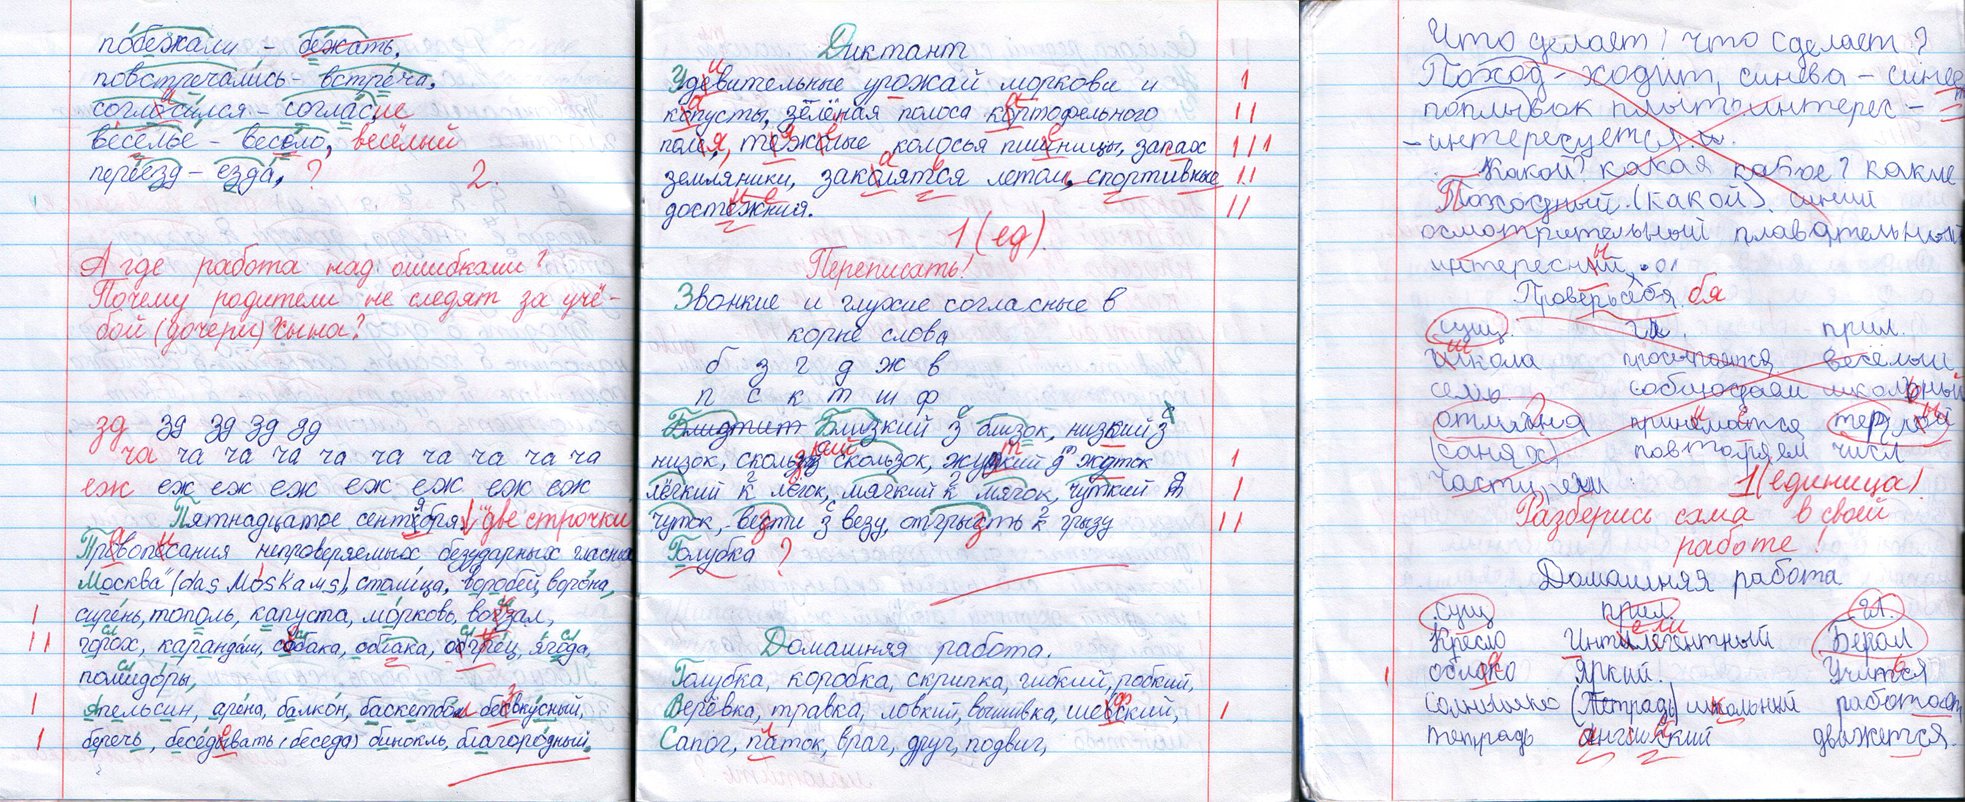 побежали - бежать,
повстречались - встреча,
согласился - согласие
веселье - весело, весёлый
переезд - езда, ? 2
А где работа над ошибками?
Почему родители не следят за учё-
бой (дочери) сына?
зд зд зд зд зд
ча ча ча ча ча ча ча ча ча ча
еж еж еж еж еж еж еж еж
Пятнадцатое сентября. две строчки
Правописания непроверяемых безударных гласных
Москва (das Moskaus), столица, воробей, ворона,
I сирень, тополь, капуста, морковь, вокзал,
II горох, карандаш, собака, облака, огурец, ягода,
помидоры,
I Апельсин, арена, балкон, баскетбол безвкусный,
I беречь, беседывать (беседа) бинокль, благородный.
Диктант
Удевительные урожай моркови и I
копусты, зелёная полоса кортофельного II
поля, тежолые колосья пшеницы, запах III
земляники, закалятся летом, спортивные II
достежния. II
1 (ед).
Переписать!
Звонкие и глухие согласные в
корне слова
б з г д ж в
п с к т ш ф
Близкий з близок, низкий з
низок, скользкий скользок, жуткий жуток I
лёгкий к лёгок, мягкий к мягок, чуткий т I
чуток, везти з везу, отгрызть к грызу II
Голубка ?
Домашняя работа.
Голубка, коробка, скрипка, гибкий, робкий,
Верёвка, травка, ловкий, вышивка, шевский, I
Сапог, паток, враг, друг, подвиг,
Что делает? что сделает?
Поход - ходит, синева - синеет
поплывок плыть интерес -
- интересуется.
Какой? какая какое? какие
Походный (какой). синий
осмотрительный плавательный
интересный
Проверь себя бя
сущ. гл. прил.
школа просыпается весёлый
семь соблюдаем школьный
отмляна принимается терплвый
(санях) повторяем числ
части речи 1 (единица).
Разберись сама в своей
работе!
Домашняя работа
сущ прил. гл.
Кресло Интилегентный Бегал
I облако Яркий. Учится
солнышко (Тетрадь) школьний работает
тетрадь английский движется.